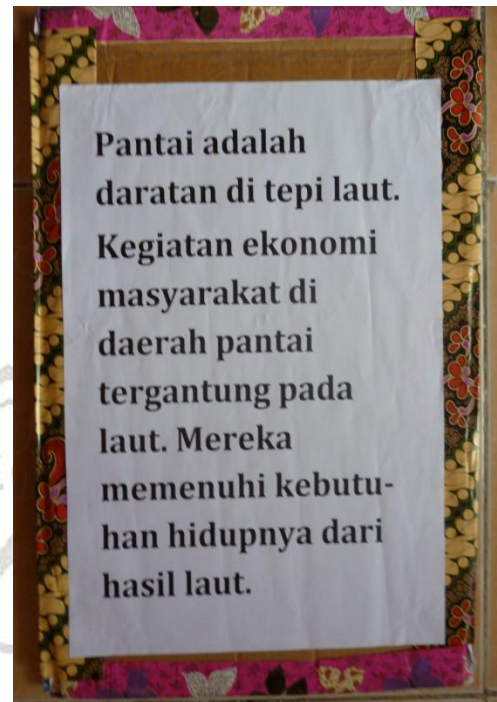 Pantai adalah
daratan di tepi laut.
Kegiatan ekonomi
masyarakat di
daerah pantai
tergantung pada
laut. Mereka
memenuhi kebutu-
han hidupnya dari
hasil laut.